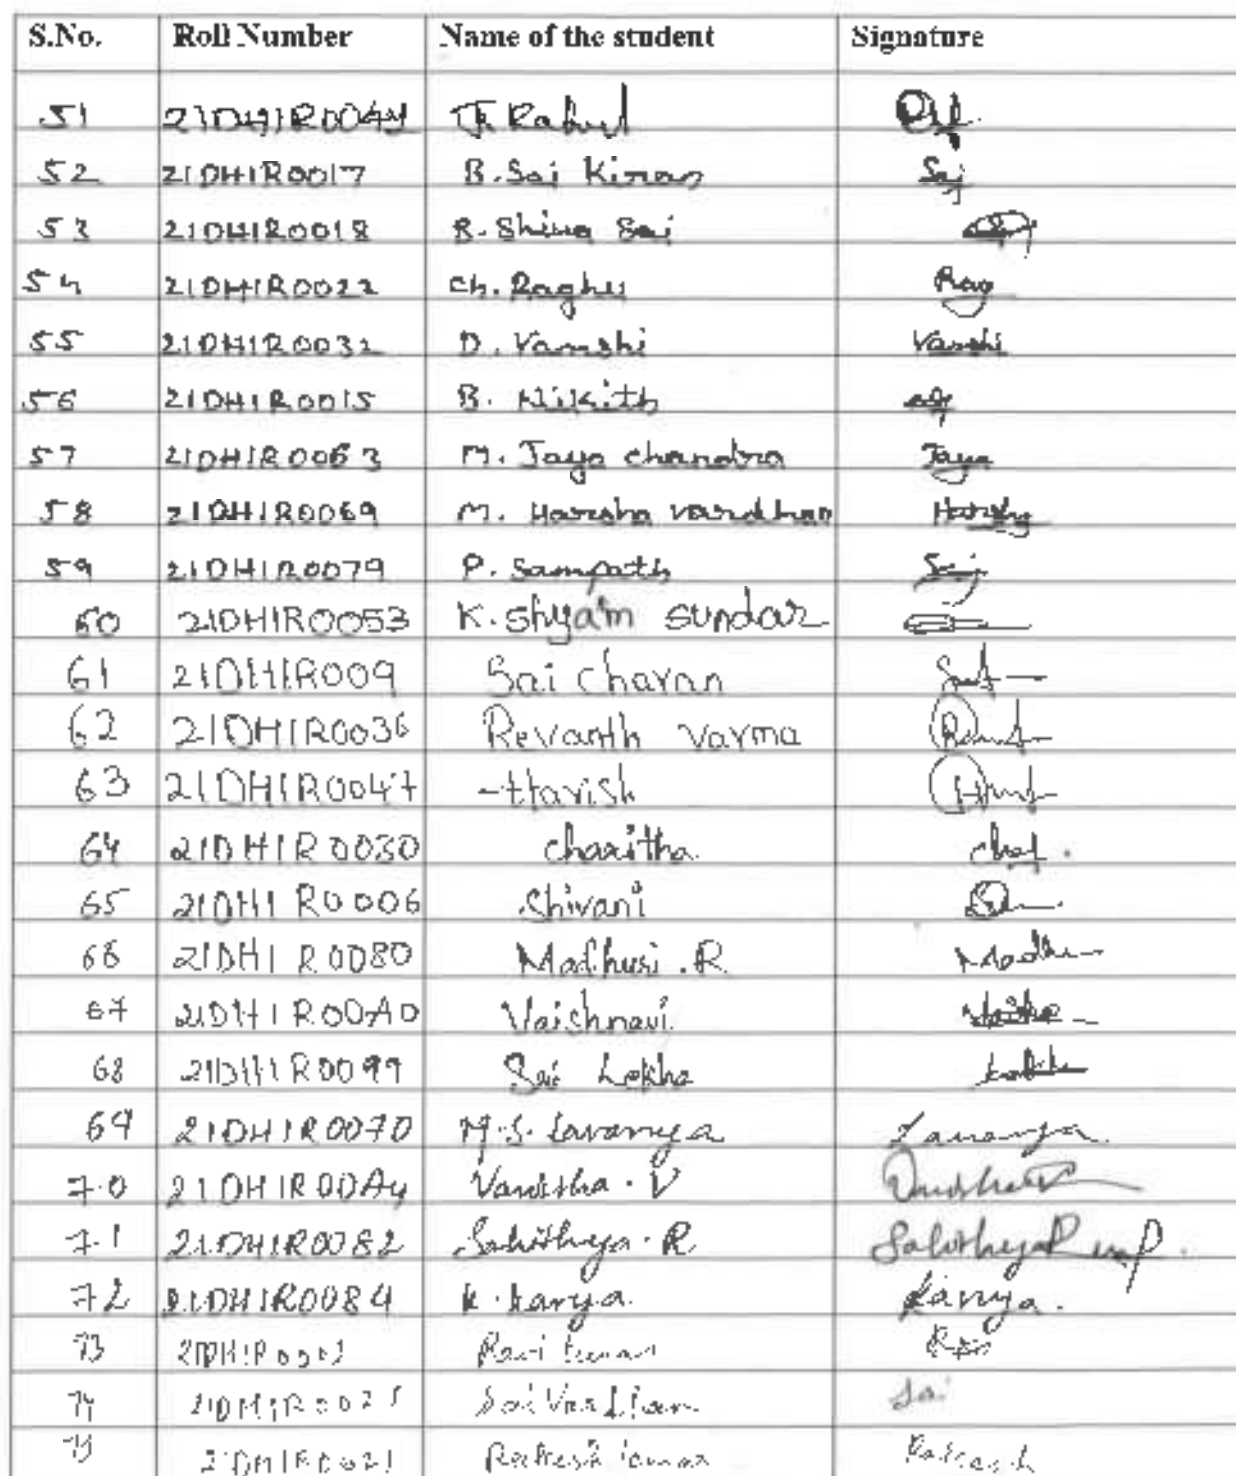 S.No. Roll Number Name of the student Signature
51 21DH1R0044 Rahul
52 21DH1R0017 B. Sai Kiran Sai
53 21DH1R0018 B. Shiva Sai
54 21DH1R0022 Ch. Raghu Rag
55 21DH1R0032 D. Vamshi Vamshi
56 21DH1R0015 B. Nikith
57 21DH1R0063 M. Jaya chandra Jaya
58 21DH1R0069 M. Harsha vardhan Harsha
59 21DH1R0079 P. Sampath
60 21DH1R0053 K. Shyam sundar
61 21DH1R009 Sai Charan
62 21DH1R0036 Revanth Varma
63 21DH1R0047 Havish
64 21DH1R0030 Charitha
65 21DH1R0006 Shivani
66 21DH1R0080 Madhuri . R Madhu
67 21DH1R00A0 Vaishnavi
68 21DH1R0099 Sai Lekha
69 21DH1R0070 M.S. Lavanya Lavanya
70 21DH1R00A4 V
71 21DH1R0082 Sahithya. R Sahithya
72 21DH1R0084 K. Kavya Kavya.
73 Ravi kumar
74 Sai Vardhan Sai
75 21DH1R0021 Rakesh kumar Rakesh